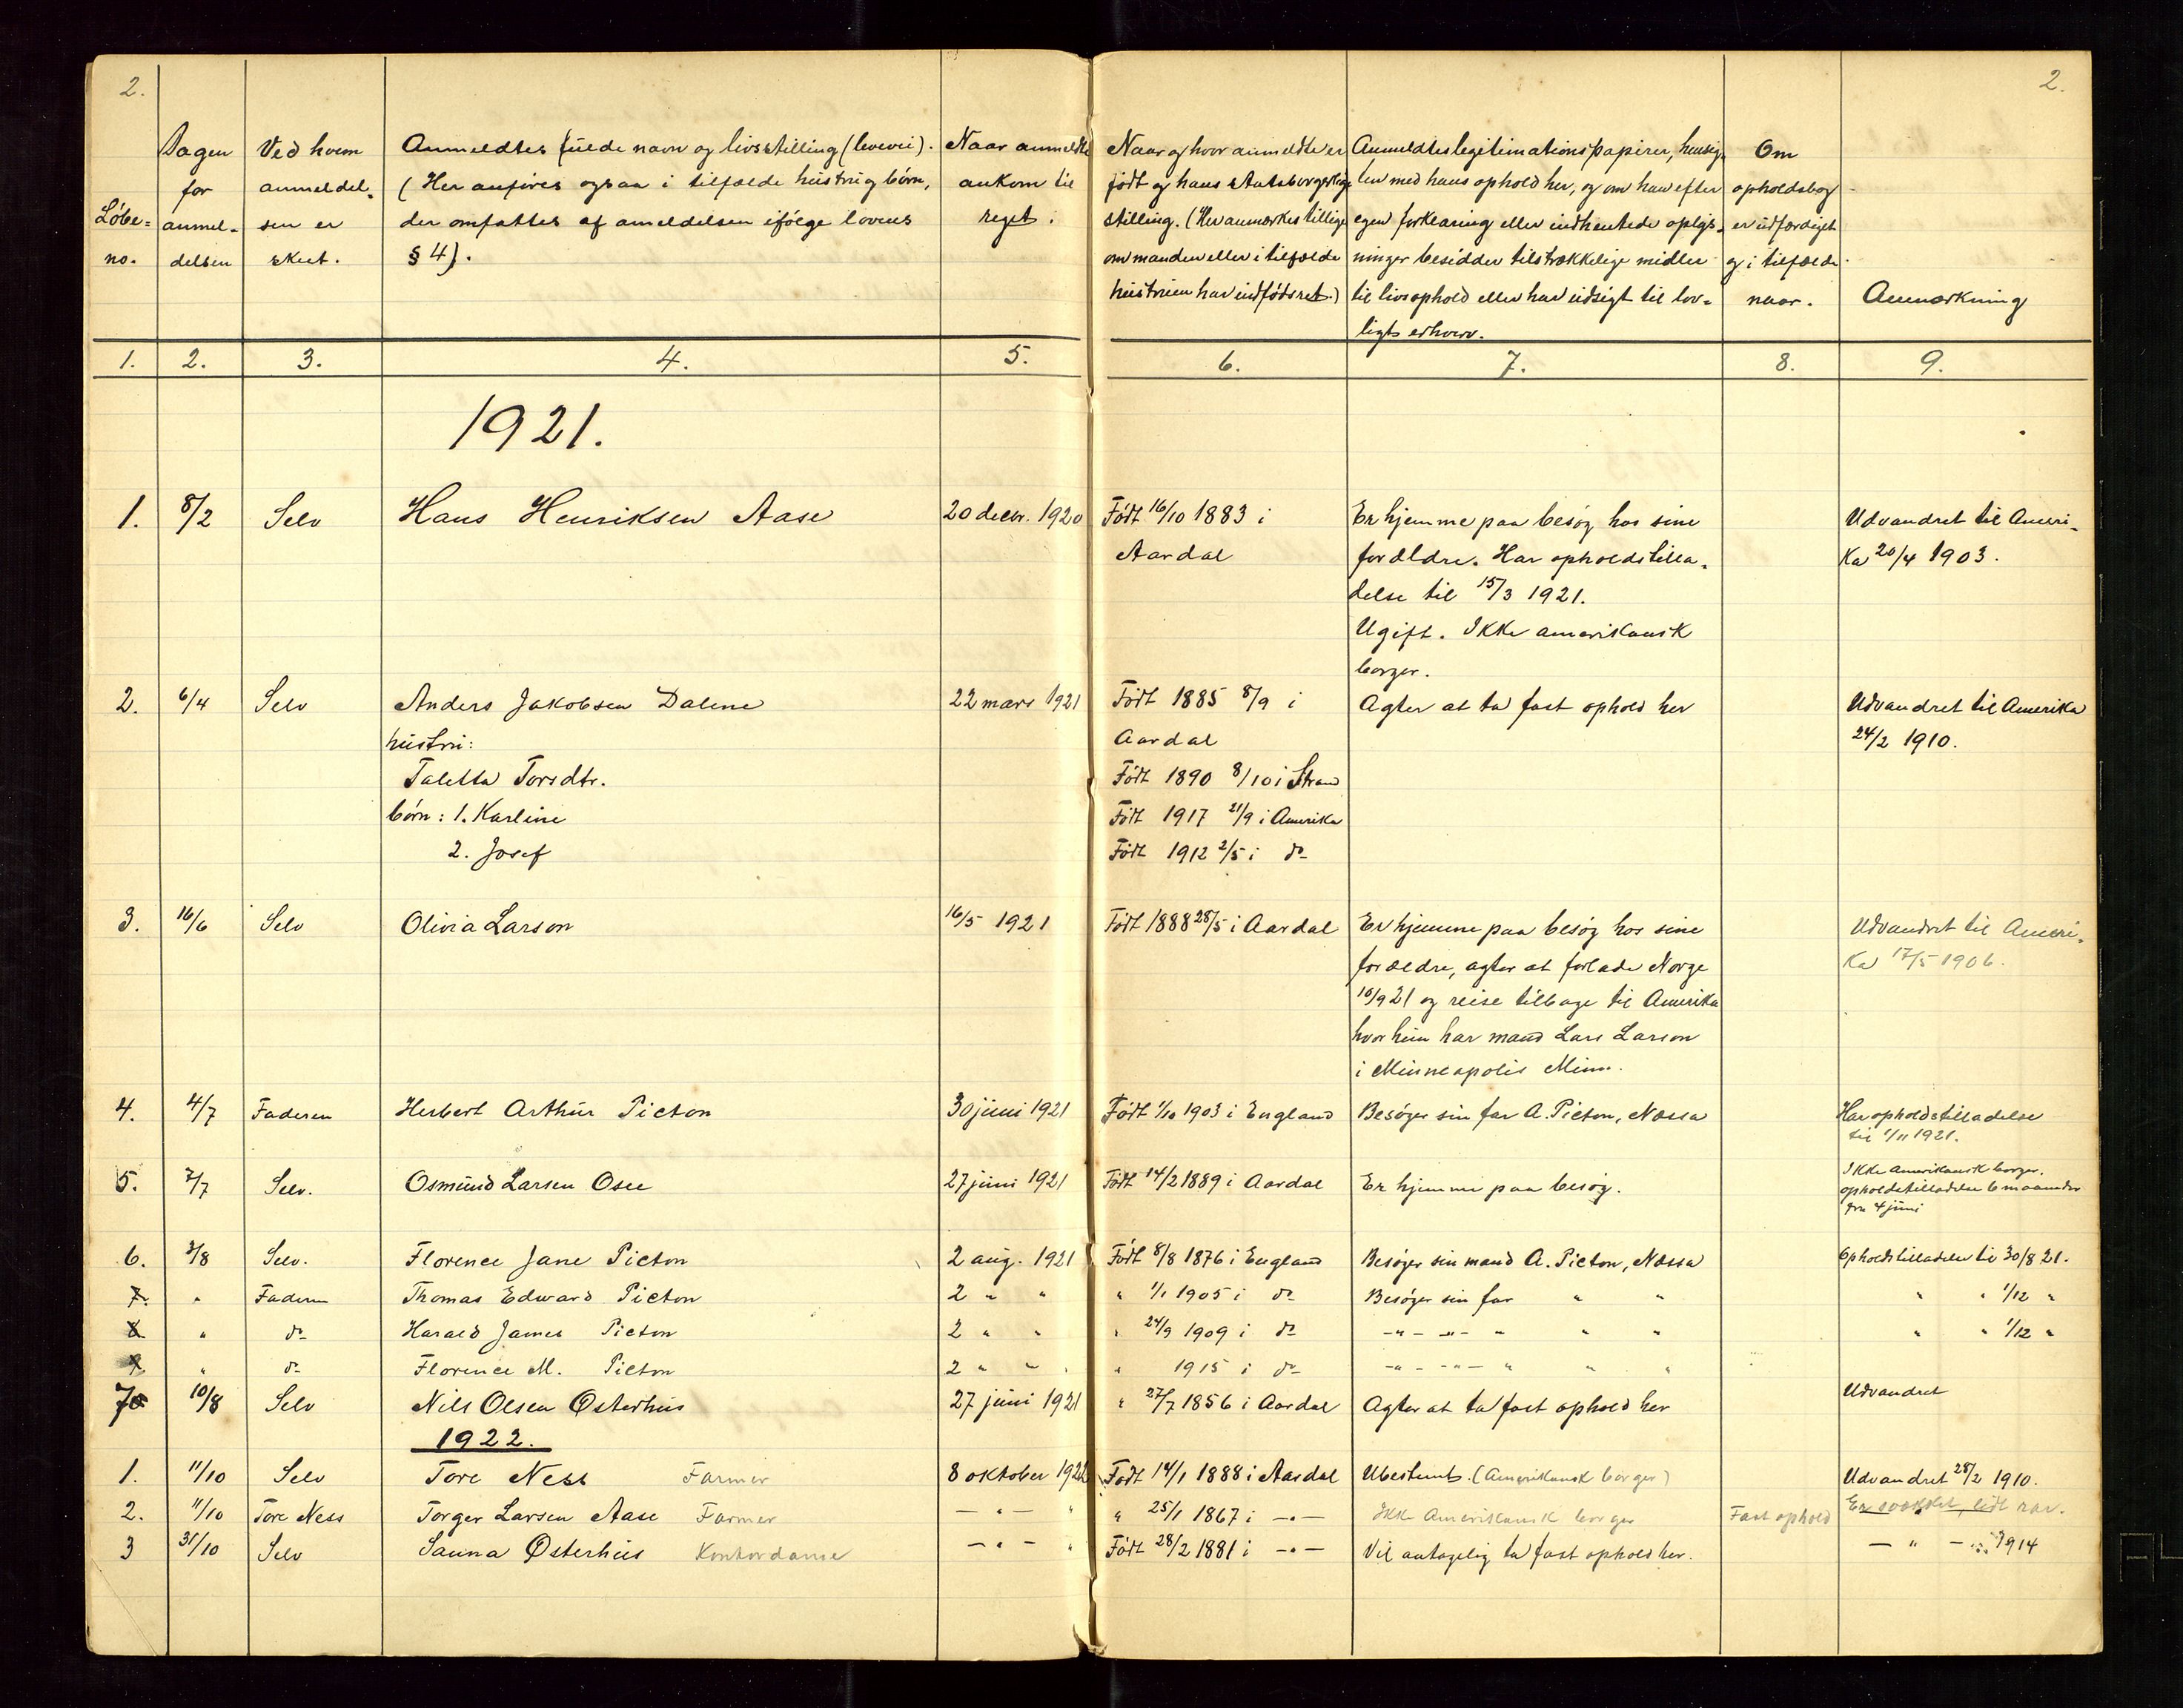 2.
2.
Løbe=
no.
Dagen
for
anmel-
delsen
Ved hvem
anmeldel-
sen er
skeet.
Anmeldtes fulde navn og livsstilling (levevei).
(Her anføres ogsaa i tilfælde hustru og børn,
der omfattes af anmeldelsen ifølge lovens
§ 4).
Naar anmeldte
ankom til
riget.
Naar og hvor anmeldte er
født og hans statsborgerlige
stilling. (Her anmerkes tillige
om manden eller i tilfælde
hustruen har indfødsret.)
Anmeldtes legitimationspapirer, hensig-
ten med hans ophold her, og om han efter
egen forklaring eller indhentede oplys-
ninger besidder tilstrækkelige midler
til livsophold eller har udsigt til lov-
ligt erhverv.
Om
opholdsbog
er udfærdiget
og i tilfælde
naar.
Anmærkning
1. 2. 3. 4. 5. 6. 7. 8. 9.
1921.
1. 8/2 Selv Hans Henriksen Aase 20 decbr. 1920 Født 16/10 1883 i Er hjemme paa besøg hos sine Udvandret til Ameri-
Aardal forældre. Har opholdstilla- ka 20/4 1903.
delse til 15/3 1921.
Ugift. Ikke amerikansk
borger.
2. 6/4 Selv Anders Jakobsen Dalene 22 mars 1921 Født 1885 8/9 i Agter at ta fast ophold her Udvandret til Amerika
hustru: Aardal 24/2 1910.
Taletta Torsdtr. Født 1890 8/10 i Strand
børn: 1. Karline Født 1917 21/9 i Amerika
2. Josef Født 1912 2/5 i do
3. 16/6 Selv Olivia Larson 16/5 1921 Født 1888 28/5 i Aardal Er hjemme paa besøg hos sine Udvandret til Ameri-
forældre, agter at forlade Norge ka 17/5 1906.
16/9 21 og reise tilbage til Amerika
hvor hun har mand Lars Larson
i Minneapolis Minn.
4. 4/7 Faderen Herbert Arthur Picton 30 juni 1921 Født 1/10 1903 i England Besøger sin far A. Picton, Nessa Har opholdstilladelse
til 1/11 1921.
5. 7/7 Selv. Osmund Larsen Osee 27 juni 1921 Født 14/2 1889 i Aardal Er hjemme paa besøg. Ikke Amerikansk borger.
opholdstilladelse 6 maaneder
fra 4 juni
6. 3/8 Selv. Florence Jane Picton 2 aug. 1921 Født 8/8 1876 i England Besøger sin mand A. Picton, Nessa Opholdstilladelse til 30/8 21.
7. " Faderen Thomas Edward Picton 2 " " " 1/1 1905 i do Besøger sin far " " " " 1/12 "
8 " do Harald James Picton 2 " " " 24/9 1909 i do -"- -"- " " " " " 1/12 "
9 " do Florence M. Picton 2 " " " 1915 i do -"- -"- " " "
7 10/8 Selv Nils Olsen Østerhus 27 juni 1921 " 27/7 1856 i Aardal Agter at ta fast ophold her Udvandret
1922.
1. 11/10 Selv Tore Ness Farmer 8 oktober 1922 Født 14/1 1888 i Aardal Ubestemt. (Amerikansk borger) Udvandret 28/2 1910.
2. 11/10 Tore Ness Torger Larsen Aase Farmer -"- " " 25/1 1867 i -"- Ikke Amerikansk borger Fast ophold Er
3 31/10 Selv Sanna Østerhus Kontordame -"- " Født 28/2 1881 i -"- Vil antagelig ta fast ophold her. - " - 1914